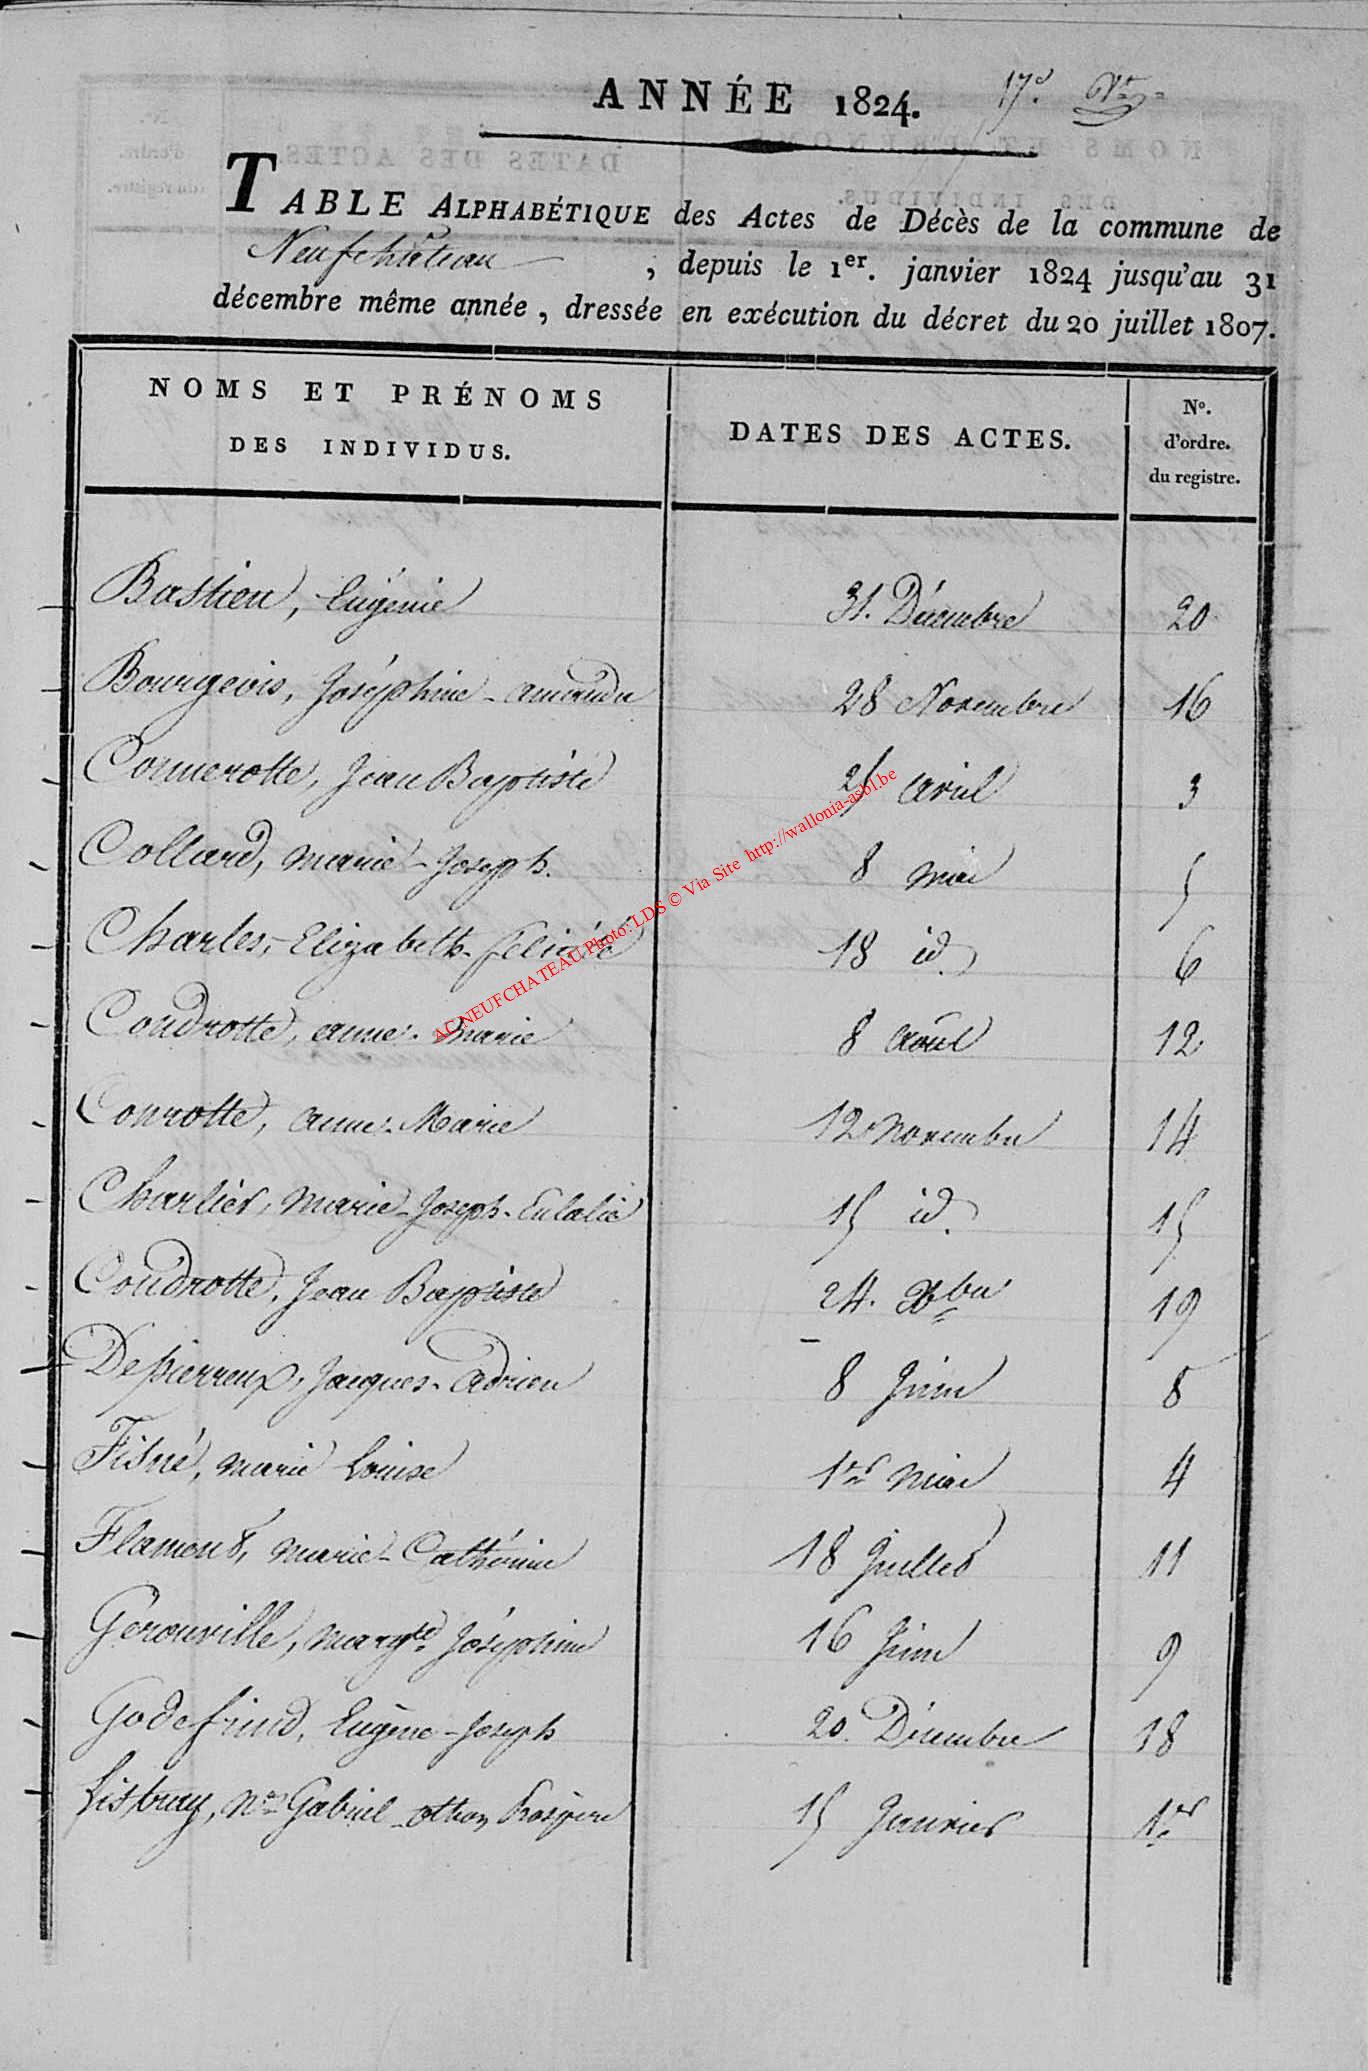 ANNÉE 1824.
17.e
TABLE ALPHABÉTIQUE des Actes de Décès de la commune de
Neufchâteau , depuis le 1er. janvier 1824 jusqu'au 31
décembre même année, dressée en exécution du décret du 20 juillet 1807.
NOMS ET PRÉNOMS
DES INDIVIDUS.
DATES DES ACTES.
No.
d'ordre.
du registre.
Bastien, Eugénie 31. Décembre 20
Bourgeois, Joséphine-amanda 28 Novembre 16
Connerotte, Jean Baptiste 25 avril 3
Collard, marie-Joseph. 8 mai 5
Charles, Elizabeth-félicité 18 id. 6
Condrotte, anne-marie 8 août 12
Conrotte, anne-Marie 12 novembre 14
Charlier, marie-Joseph-Eulalie 15 id. 15
Condrotte, Jean Baptiste 24. Xbre 19
Depierreux, Jacques-adrien 8 Juin 8
Fisné, marie Louise 1er mai 4
Flamend, marie-Cathérine 18 Juillet 11
Gérouville, margte Joséphine 16 Juin 9
Godefrind, Eugène-Joseph 20. Décembre 18
Listray, Gabriel othon Prospère 15 Janvier 1er
AC NEUFCHATEAU Photo: LDS © Via Site http://wallonia-asbl.be